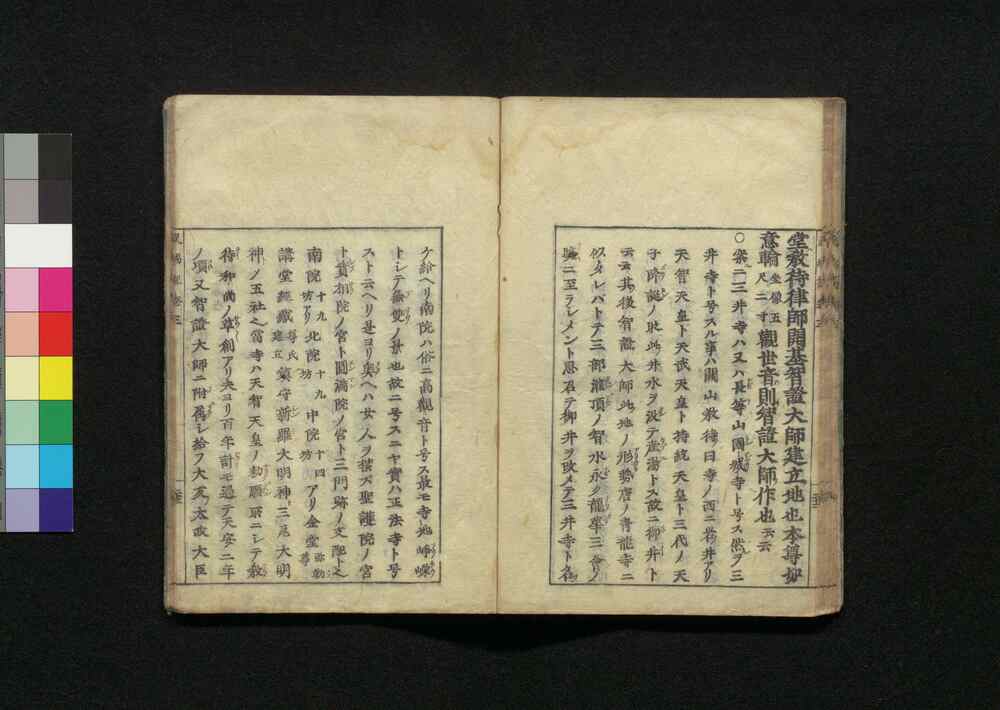 堂教待律師開基智證大師建立地也本尊如
意輪坐像五尺二寸觀世音則智證大師作也云云
○案二三井寺ハ又ハ長等山園城寺ト号ス然ヲ三
井寺ト号スル事ハ關山教待曰寺ノ西ニ岩井アリ
天智天皇ト天武天皇ト持統天皇ト三代ノ天
子降誕ノ時此井水ヲ汲テ産湯トス故ニ御井ト
云云其後智證大師此地ノ形勢唐ノ青龍寺ニ
似タレバトテ三部灌頂ノ智水永ク龍華三會ノ
曉ニ至ラシメント思召テ御井ヲ改メテ三井寺ト名
ケ給ヘリ南院ハ俗ニ高觀音ト号ス最モ寺地崢嶸
トシテ無雙ノ景也故ニ号スニヤ實ハ正法寺ト号
スト云ヘリ是ヨリ奥ヘハ女人ヲ禁ズ聖護院ノ宮
ト實相院ノ宮ト圓滿院ノ宮ト三門跡ノ支配ト之
南院十九坊アリ北院十九坊中院十四坊アリ金堂弥勒尊
講堂經藏尊氏建立鎮守新羅大明神三尾大明
神ノ五社之當寺ハ天智天皇ノ勅願所ニシテ教
待和尚ノ草創アリ夫ヨリ百年計モ過テ天安二年
ノ頃又智證大師ニ附屬シ給フ大友太政大臣